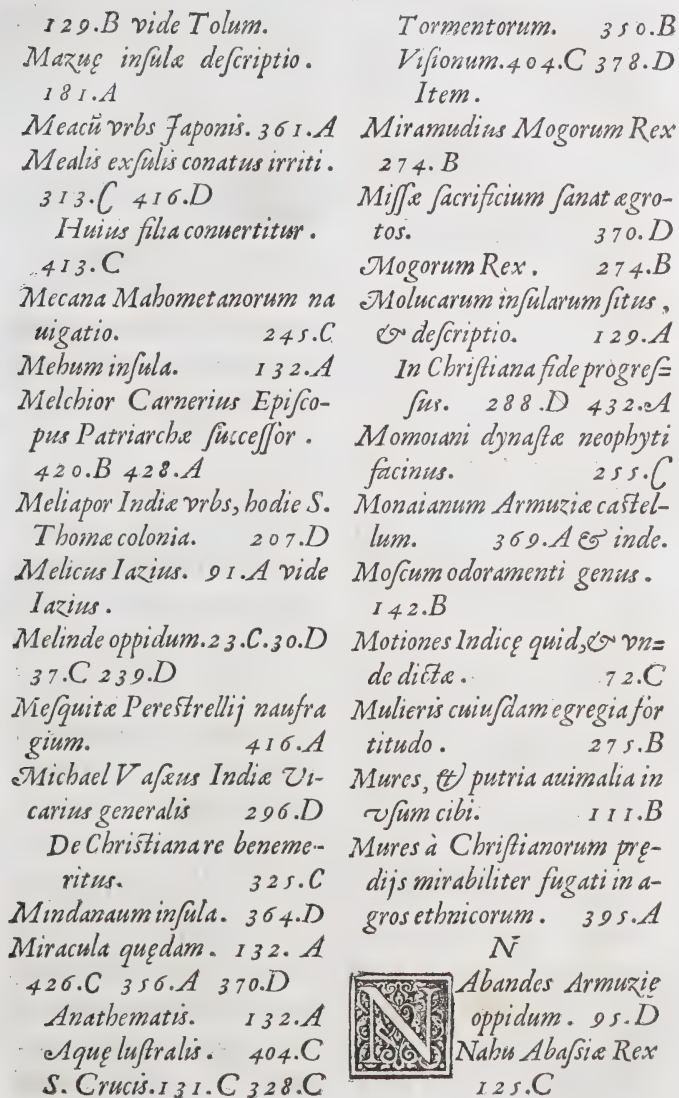 129.B vide Tolum.
Mazuę inſulæ deſcriptio.
181.A
Meacū vrbs Japonis. 361.A
Mealis exſulis conatus irriti.
313.C 416.D
Huius filia conuertitur.
413.C
Mecana Mahometanorum na
uigatio. 245.C
Mehum inſula. 132.A
Melchior Carnerius Epiſco-
pus Patriarchæ ſucceſſor.
420.B 428.A
Meliapor Indiæ vrbs, hodie S.
Thomæ colonia. 207.D
Melicus Iazius. 91.A vide
Iazius.
Melinde oppidum. 23.C. 30.D
37.C 239.D
Meſquitæ Pereſtrellij naufra
gium. 416.A
Michael Vaſæus Indiæ Vi-
carius generalis 296.D
De Chriſtiana re beneme-
ritus. 325.C
Mindanaum inſula. 364.D
Miracula quędam. 132. A
426.C 356.A 370.D
Anathematis. 132.A
Aquę luſtralis. 404.C
S. Crucis. 131.C 328.C
Tormentorum. 350.B
Viſionum. 404.C 378.D
Item.
Miramudius Mogorum Rex
274.B
Miſſæ ſacrificium ſanat ægro-
tos. 370.D
Mogorum Rex. 274.B
Molucarum inſularum ſitus,
& deſcriptio. 129.A
In Chriſtiana fide progreſ=
ſus. 288.D 432.A
Momoiani dynaſtæ neophyti
facinus. 255.C
Monaianum Armuziæ caſtel-
lum. 369.A & inde.
Moſcum odoramenti genus.
142.B
Motiones Indicę quid, & vn=
de dictæ. 72.C
Mulieris cuiuſdam egregia for
titudo. 275.B
Mures, & putria auimalia in
vſum cibi. 111.B
Mures à Chriſtianorum prę-
dijs mirabiliter fugati in a-
gros ethnicorum. 395.A
N
NAbandes Armuzię
oppidum. 95.D
Nahu Abaſsiæ Rex
125.C